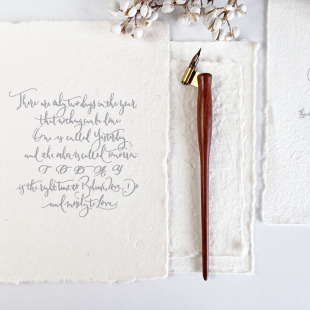 There are only two days in the year
that nothing can be done
One is called Yesterday
and the other is called Tomorrow
TODAY
is the right time to Believe, Love, Do
and mostly to Love